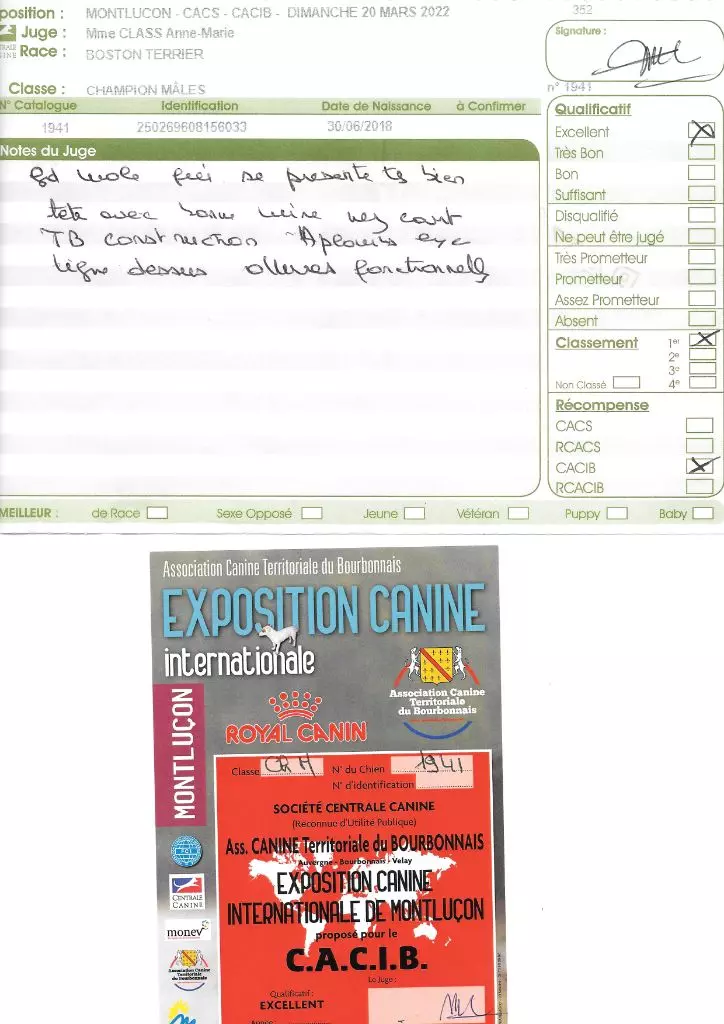 position : MONTLUCON - CACS - CACIB - DIMANCHE 20 MARS 2022
352
Juge : Mme CLASS Anne-Marie
Race : BOSTON TERRIER
Signature :
Classe : CHAMPION MÂLES
n° 1941
N° Catalogue Identification Date de Naissance à Confirmer
1941 250269608156033 30/06/2018
Notes du Juge
Gd male se presente ts bien
tete avec bonne nez court
TB construction Aplombs
ligne dessus allures fonctionnelles
Qualificatif
Excellent
Très Bon
Bon
Suffisant
Disqualifié
Ne peut être jugé
Très Prometteur
Prometteur
Assez Prometteur
Absent
Classement 1er
2e
3e
Non Classé 4e
Récompense
CACS
RCACS
CACIB
RCACIB
MEILLEUR : de Race Sexe Opposé Jeune Vétéran Puppy Baby
Association Canine Territoriale du Bourbonnais
EXPOSITION CANINE
internationale
Association Canine
Territoriale
du Bourbonnais
MONTLUÇON
ROYAL CANIN
Classe CH M N° du Chien 1941
N° d'identification
SOCIÉTÉ CENTRALE CANINE
(Reconnue d'Utilité Publique)
Ass. CANINE Territoriale du BOURBONNAIS
Auvergne - Bourbonnais - Velay
EXPOSITION CANINE
INTERNATIONALE DE MONTLUÇON
proposé pour le
C.A.C.I.B.
FCI
CENTRALE
CANINE
monev
Association Canine
Territoriale
du Bourbonnais
Le Juge :
Qualificatif :
EXCELLENT